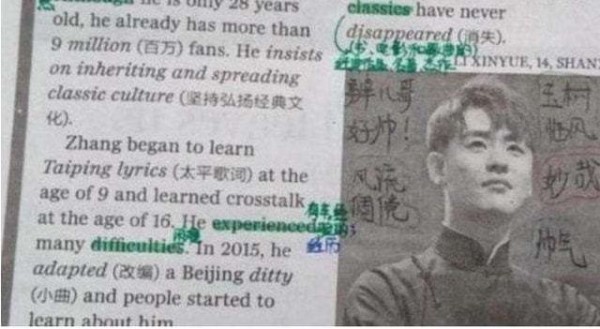 he is only 28 years
old, he already has more than
9 million (百万) fans. He insists
on inheriting and spreading
classic culture (坚持弘扬经典文
化).
Zhang began to learn
Taiping lyrics (太平歌词) at the
age of 9 and learned crosstalk
at the age of 16. He experienced
many difficulties. In 2015, he
adapted (改编) a Beijing ditty
(小曲) and people started to
learn about him.
classics have never
disappeared (消失).
LI XINYUE, 14, SHAN
辫儿哥
好帅!
风流
倜傥
玉树
临风
妙哉
帅气
困难
经历